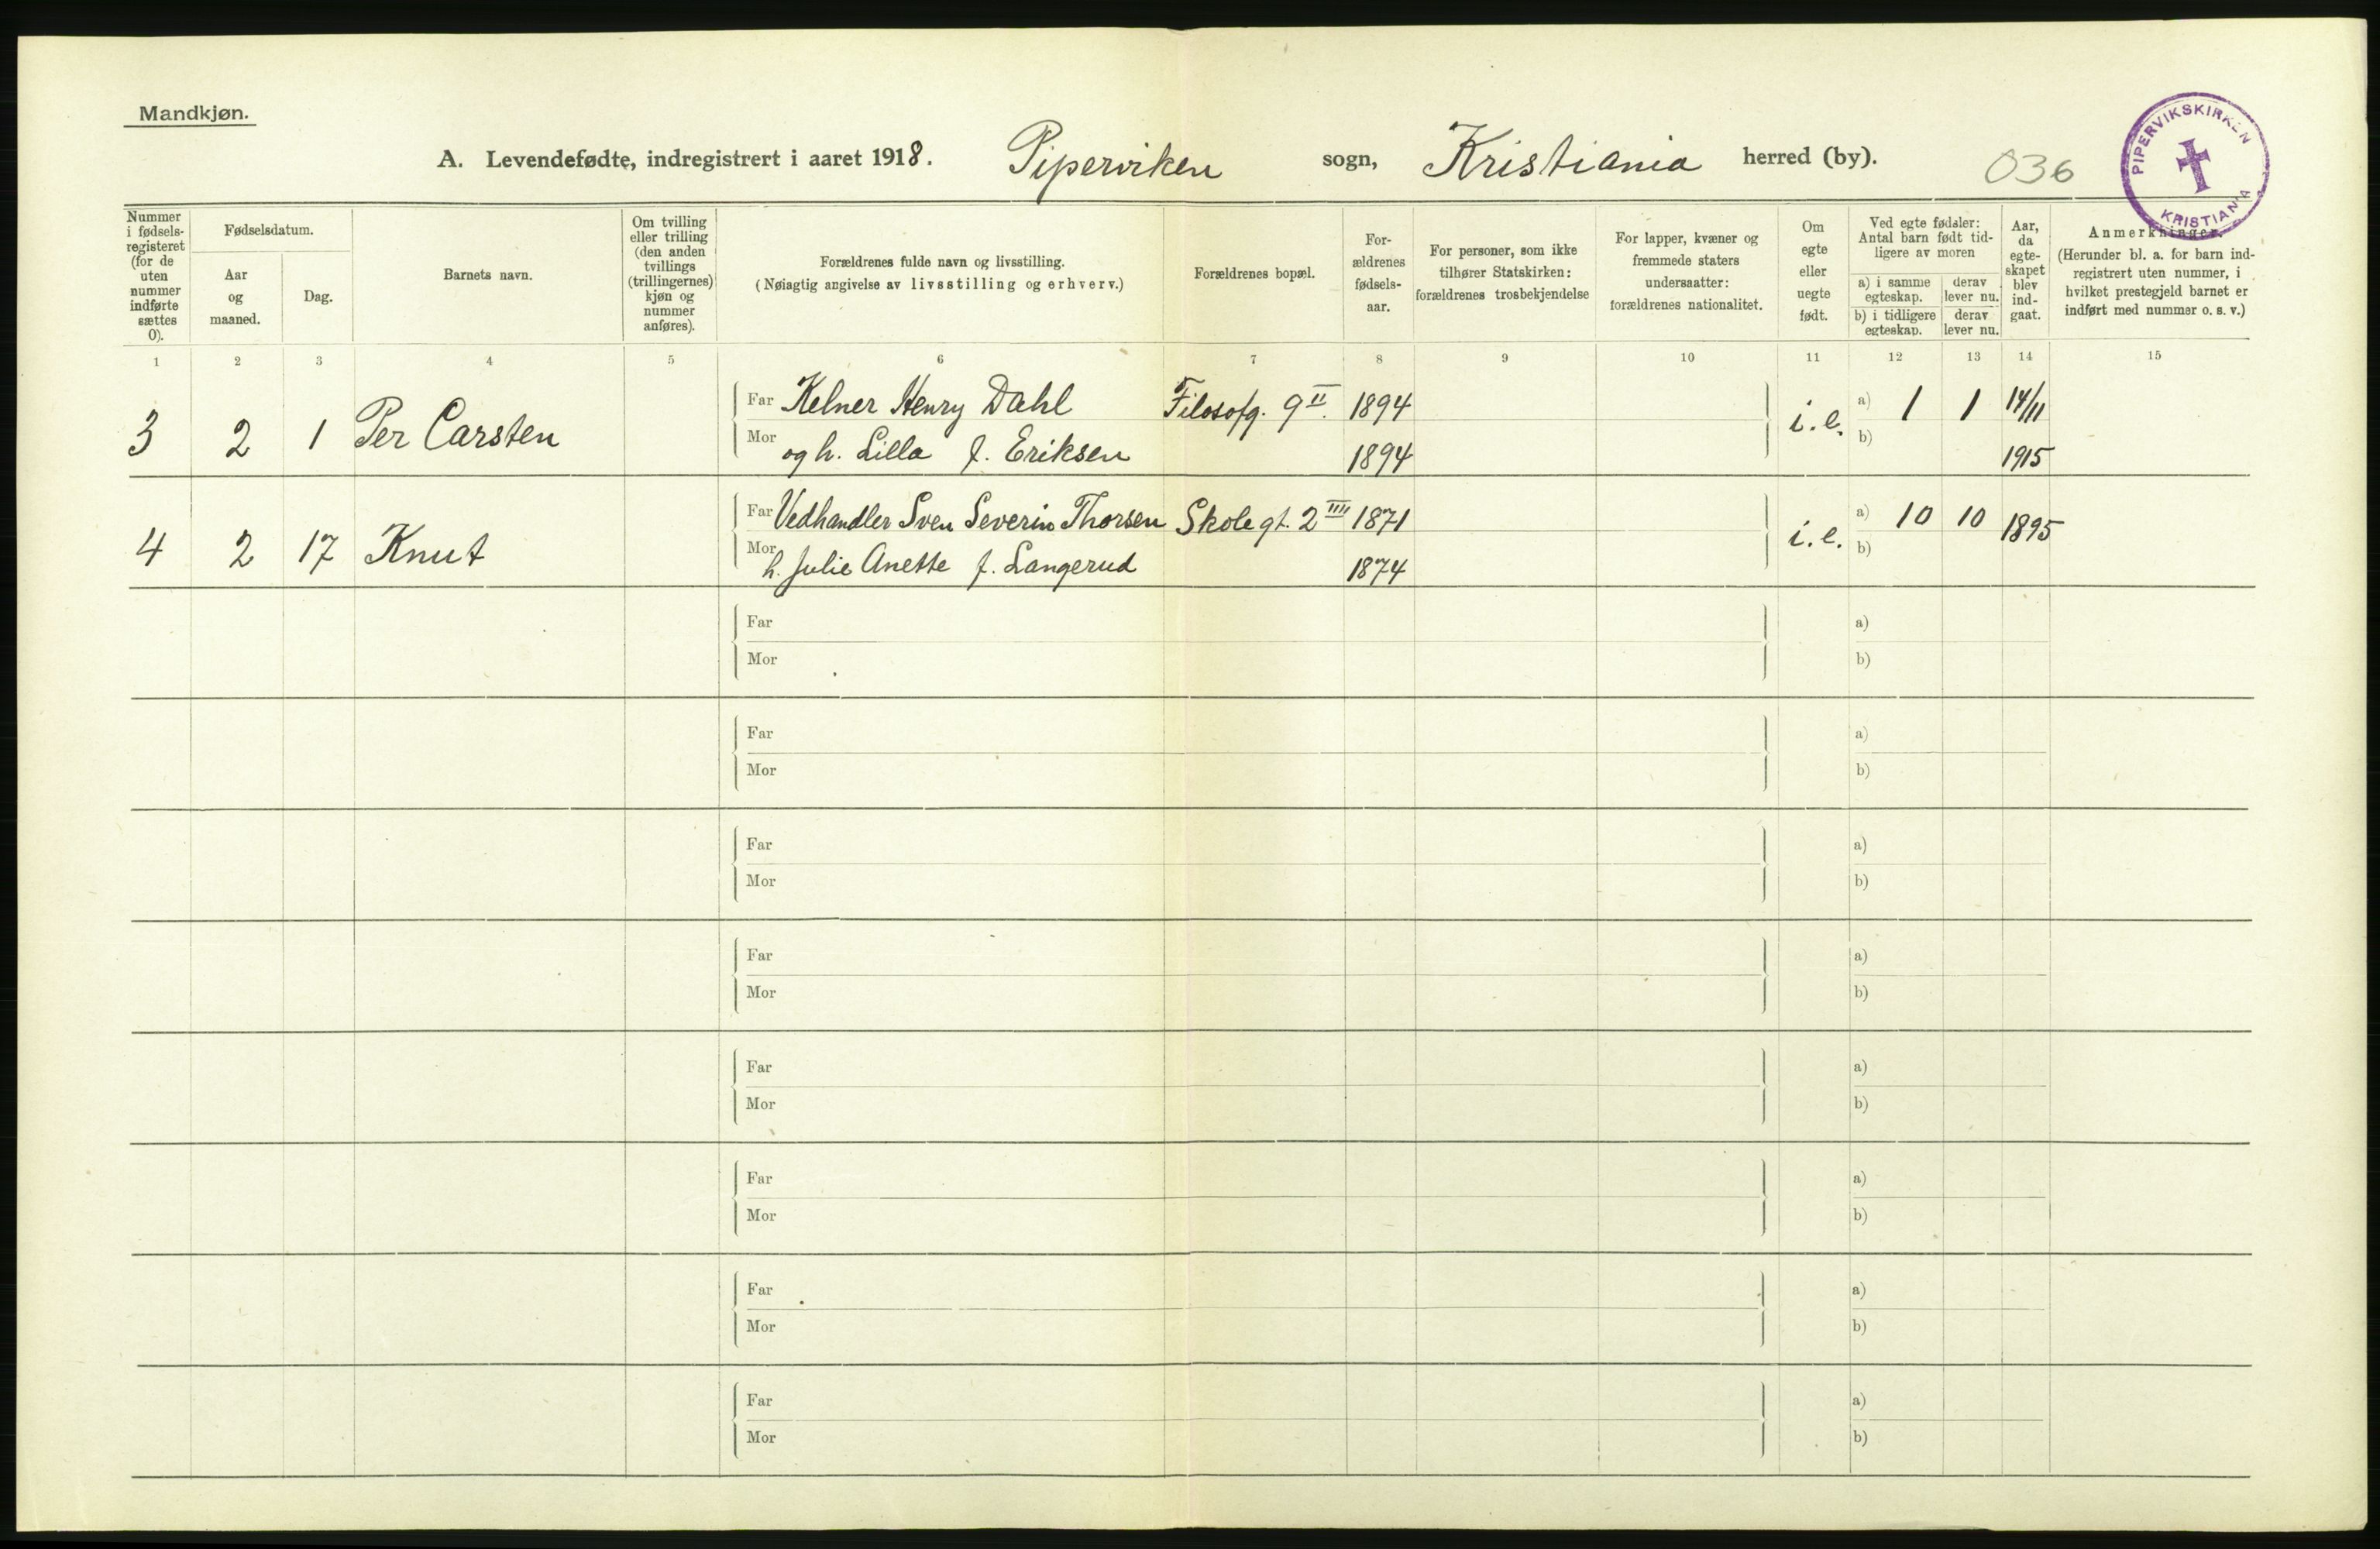 Mandkjøn.
A. Levendefødte, indregistrert i aaret 1918. Piperviken sogn, Kristiania herred (by). 036
PIPERVIKSKIRKEN KRISTIANIA
Nummer i fødsels-registeret (for de uten nummer indførte sættes 0).
Fødselsdatum.
Aar og maaned.
Dag.
Barnets navn.
Om tvilling eller trilling (den anden tvillings (trillingernes) kjøn og nummer anføres).
Forældrenes fulde navn og livsstilling.
(Nøiagtig angivelse av livsstilling og erhverv.)
Forældrenes bopæl.
For-ældrenes fødsels-aar.
For personer, som ikke tilhører Statskirken: forældrenes trosbekjendelse
For lapper, kvæner og fremmede staters undersaatter: forældrenes nationalitet.
Om egte eller uegte født.
Ved egte fødsler: Antal barn født tid-ligere av moren
a) i samme egteskap.
derav lever nu.
b) i tidligere egteskap.
derav lever nu.
Aar, da egte-skapet blev ind-gaat.
Anmerkninger.
(Herunder bl. a. for barn ind-registrert uten nummer, i hvilket prestegjeld barnet er indført med nummer o. s. v.)
1 2 3 4 5 6 7 8 9 10 11 12 13 14 15
3 2 1 Per Carsten Far Kelner Henry Dahl Filosofg. 9 II. 1894 i.e. a) 1 1 14/11
Mor og h. Lilla f. Eriksen 1894 b) 1915
4 2 17 Knut Far Vedhandler Sven Severin Thorsen Skolegt. 2 IIII 1871 i.e. a) 10 10 1895
Mor h. Julie Anette f. Langerud 1874 b)
Far a)
Mor b)
Far a)
Mor b)
Far a)
Mor b)
Far a)
Mor b)
Far a)
Mor b)
Far a)
Mor b)
Far a)
Mor b)
Far a)
Mor b)